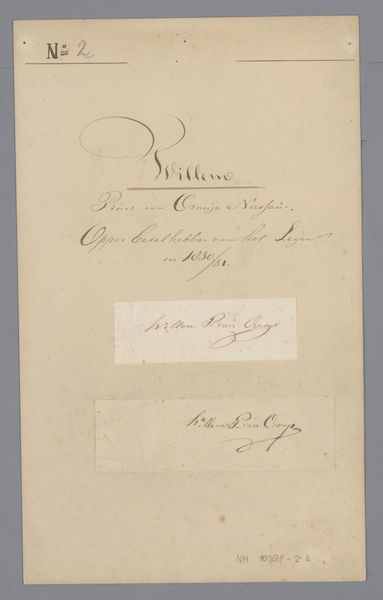 No 2
Willem
Prins van Oranje Nassau.
Opper bevelhebber van het Leger
in 1830/31.
Willem Prin Orange
Willem Prin Orange
NM 10398-2-b